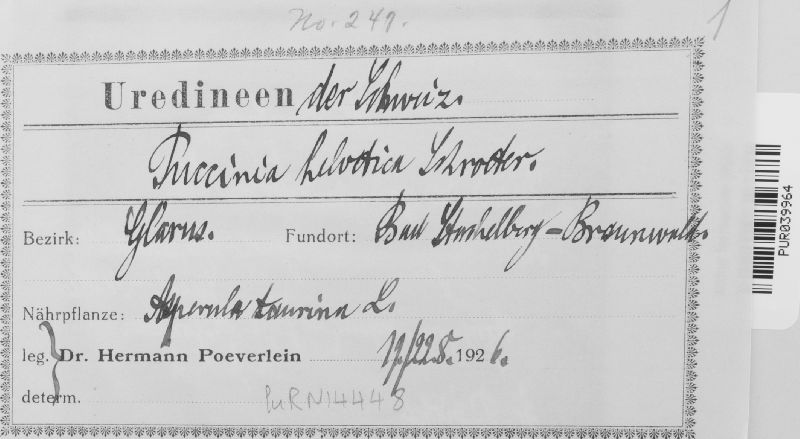 No. 249.
1
Uredineen der Schweiz.
Puccinia helvetica Schroeter.
Bezirk: Glarus. Fundort: Bad Stachelberg – Braunwald.
Nährpflanze: Asperula taurina L.
leg. Dr. Hermann Poeverlein 17./22.8. 1926.
determ.
PUR N14448
PUR039964